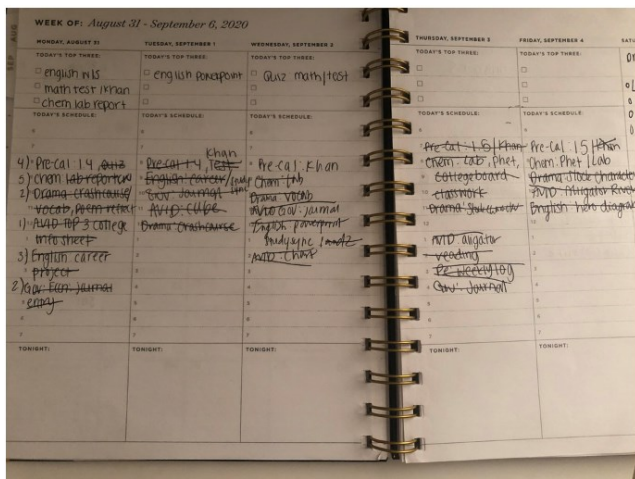 WEEK OF: August 31 - September 6, 2020
SEP AUG
MONDAY, AUGUST 31
TODAY'S TOP THREE:
english n/s
math test / khan
chem lab report
TODAY'S SCHEDULE:
4) Pre-Cal 1.4, quiz
5) Chem lab report
2) Drama crashcourse
vocab, poem
1) AVID TOP 3 college
info sheet
3) English career
project
2) Gov. Econ. Journal
entry
TONIGHT:
TUESDAY, SEPTEMBER 1
TODAY'S TOP THREE:
english powerpoint
TODAY'S SCHEDULE:
Khan
Pre-cal 1.4, Test
English: career /
Gov Journal
AVID: cube
Drama: Crashcourse
TONIGHT:
WEDNESDAY, SEPTEMBER 2
TODAY'S TOP THREE:
Quiz math/test
TODAY'S SCHEDULE:
Pre-Cal: Khan
Chem: Lab
Drama vocab
AVID Gov: journal
English powerpoint
Studysync 1 and 2
AVID: Chart
TONIGHT:
THURSDAY, SEPTEMBER 3
TODAY'S TOP THREE:
TODAY'S SCHEDULE:
Pre-Cal: 1.5 / Khan
Chem: Lab, Phet,
Collegeboard
classwork
Drama:
AVID: aligator
reading
PE: Weekly log
Gov: Journal
TONIGHT:
FRIDAY, SEPTEMBER 4
TODAY'S TOP THREE:
TODAY'S SCHEDULE:
Pre-Cal: 1.5 / Khan
Chem: Phet / Lab
Drama: Stock Character
AVID: Alligator River
English: hero diagram
TONIGHT:
SAT